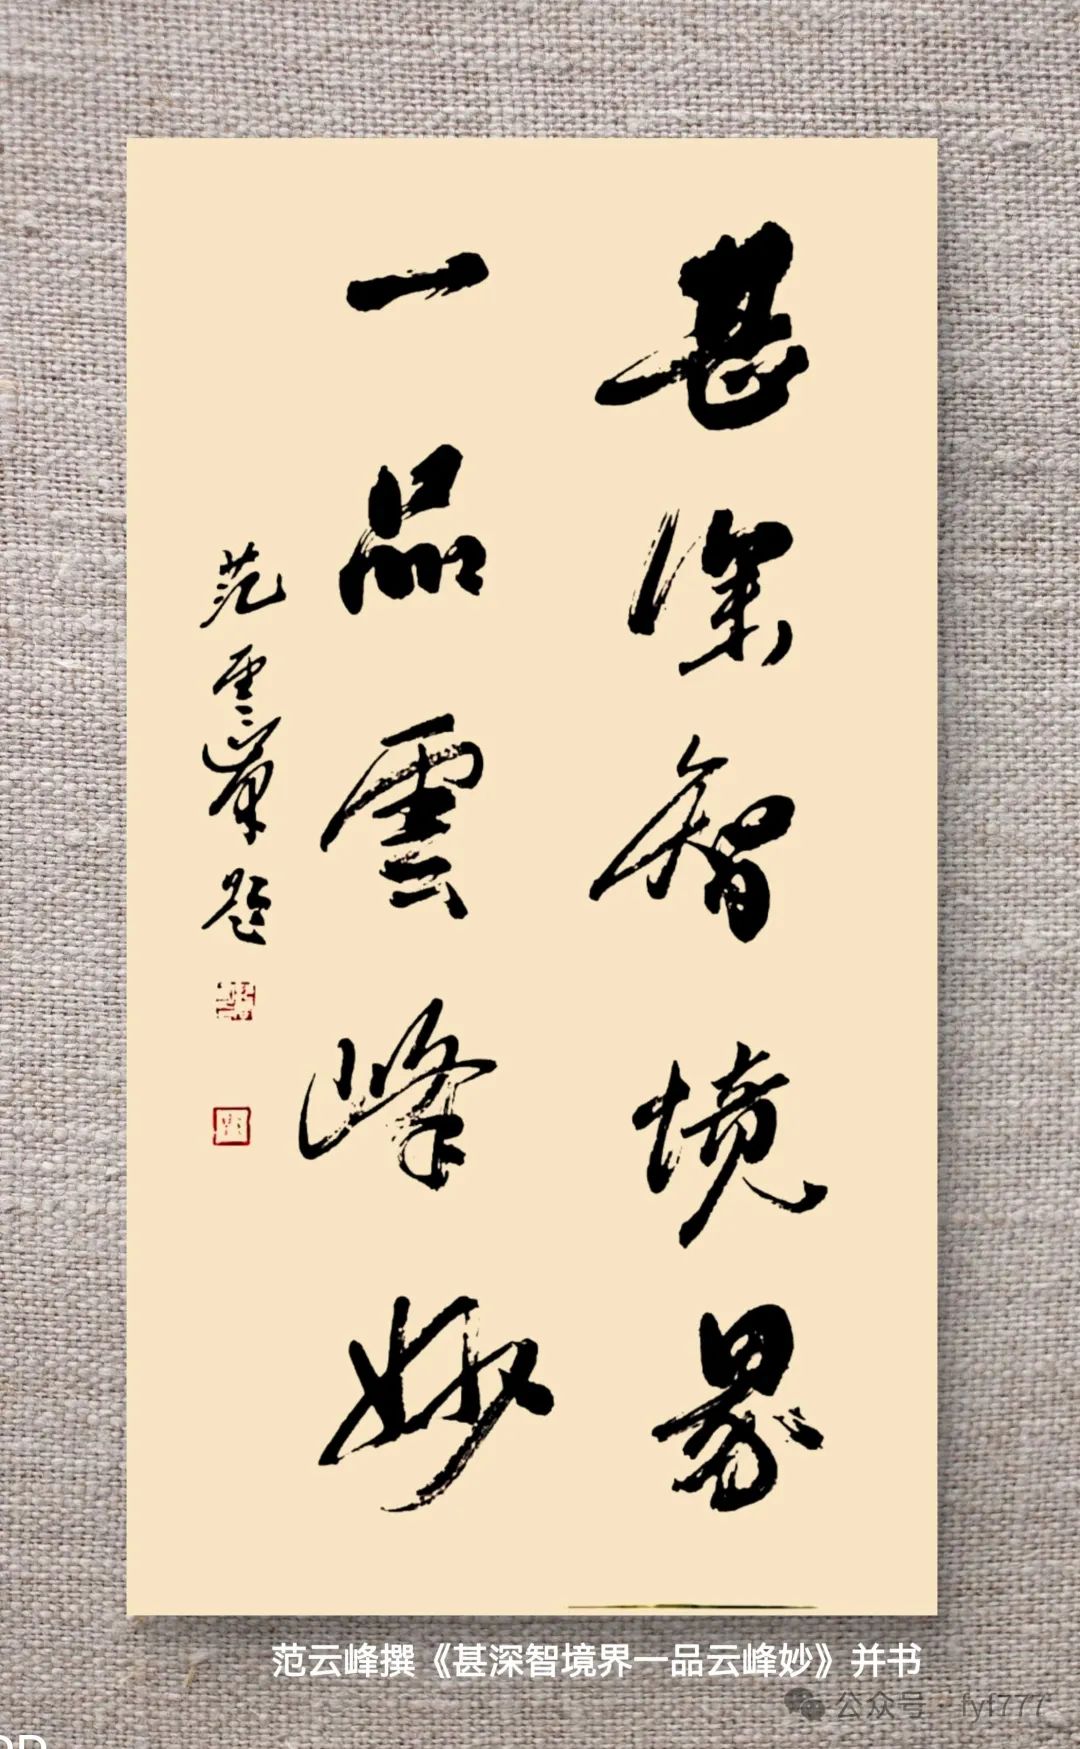 甚深智境界
一品雲峰妙
范雲峯题
范云峰撰《甚深智境界一品云峰妙》并书
公众号 · fyf777